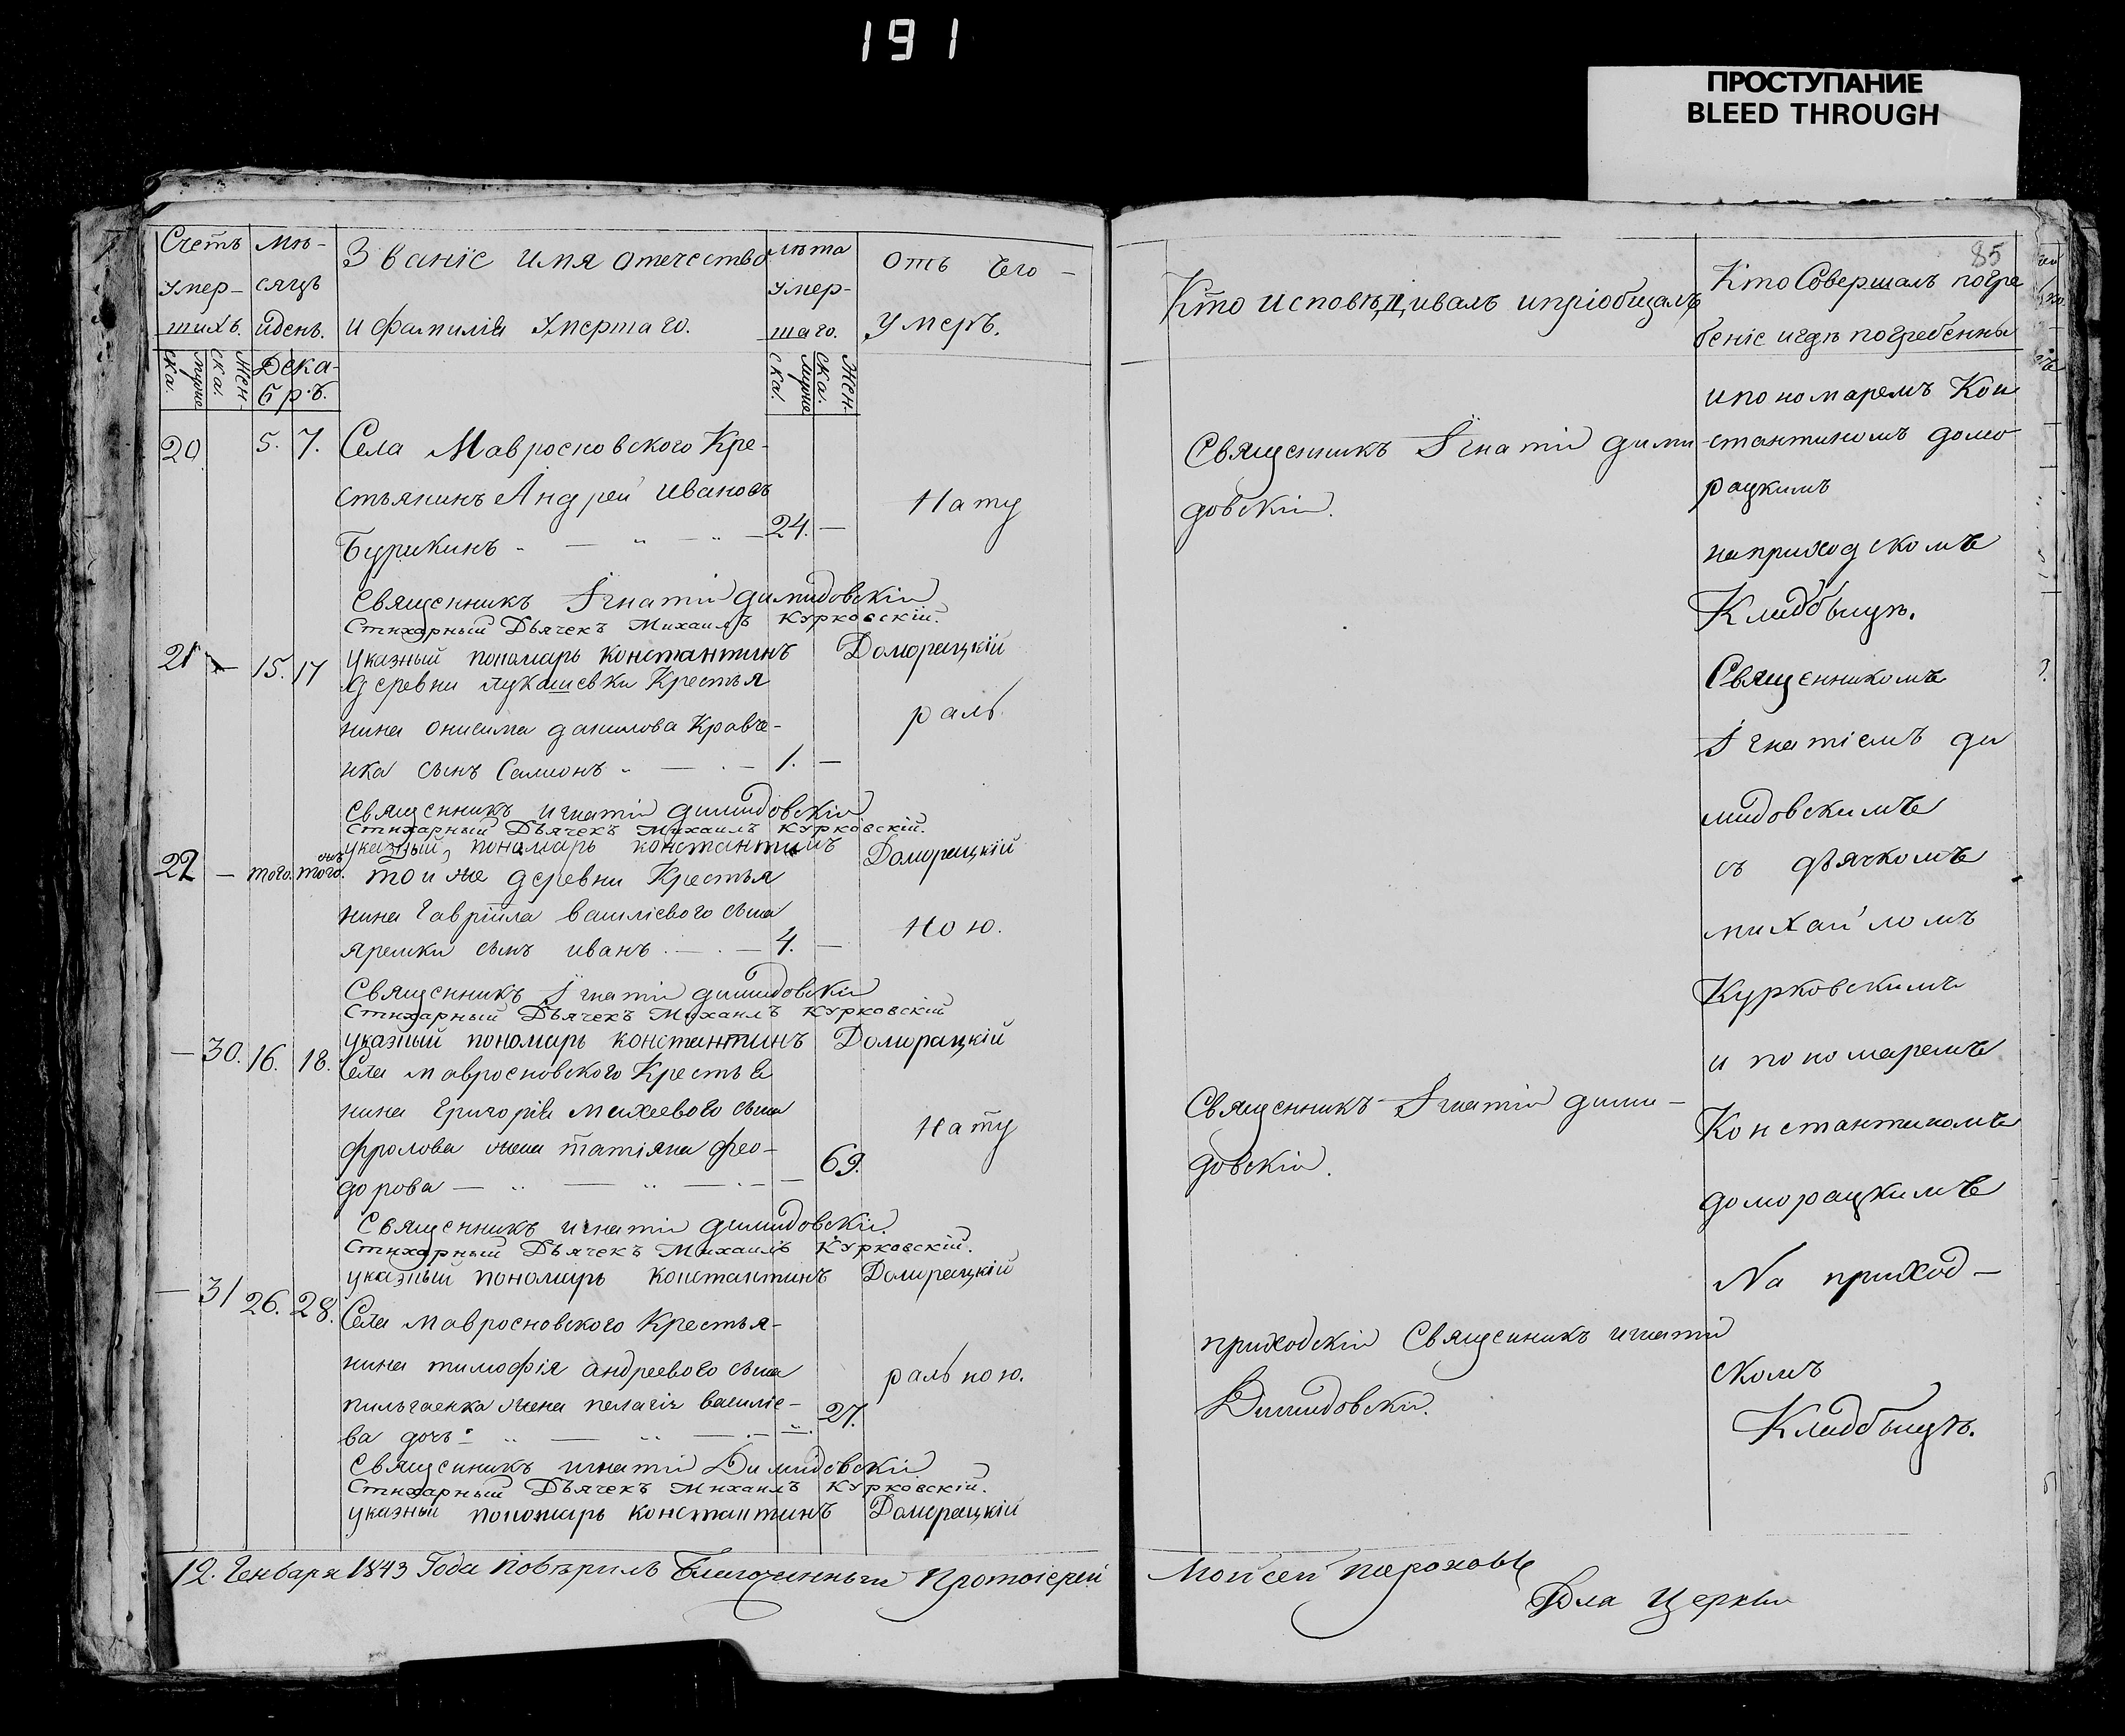 191
ПРОСТУПАНИЕ
BLEED THROUGH
Счетъ умер-шихъ.
Мѣ-сяцъ и день.
Званіе имя отечество
и фамилія умершаго.
лѣта умер-шаго.
отъ чего
умеръ.
муже ска.
Жен-ска.
Дека-
бръ.
муже ска.
Жен.ска.
20 5. 7. Села Мавросновского Кре-
стьянинъ Андрей Ивановъ
Нату
Бурикинъ 24. —
Священникъ Iгнатій Димидовскій
Стихарный Дьячекъ Михаилъ Курковскій.
Указный пономарь Константинъ Доморацкій
21 — 15. 17 деревни Лукашевки Крестья
нина онисима данилова Кравче-
раль
нка сынъ Самсонъ 1. —
Священникъ игнатій димидовскій
Стихарный Дьячекъ Михаилъ Курковскій.
указный пономарь константинъ Доморацкій
22 — того. того. той же деревни Крестья
нина Гавріила василіевого сына
ною.
яремки сынъ иванъ 4. —
Священникъ Iгнатій димидовскій
Стихарный Дьячекъ Михаилъ Курковскій
указный пономарь константинъ Доморацкій
— 30. 16. 18. Села мавросновского Крестья
нина григорія михеевого сына
Нату
фролова жена татіяна фео-
дорова 69.
Священникъ игнатій димидовскій
Стихарный Дьячекъ Михаилъ Курковскій.
указный пономарь константинъ Доморацкій
— 31 26. 28. Села мавросновского Крестья-
нина тимофія андреевого сына
ральною.
жена пелагія василіе-
27.
ва дочь
Священникъ игнатій Димидовскій
Стихарный Дьячекъ Михаилъ Курковскій.
указный пономарь константинъ Доморацкій
12. Генваря 1843 Года повѣрилъ Благочинный Протоіерей
85
Кто исповѣдывалъ и пріобщалъ
Кто Совершалъ погре
беніе и гдѣ погребенны
Священникъ Iгнатій дими
довскій.
Священникъ Iгнатій дими-
довскій.
приходскій Священникъ игнатій
Димидовскій.
и пономаремъ Кон
стантиномъ домо
рацкимъ
на приходскомъ
Кладбыщѣ.
Священникомъ
Iгнатіемъ ди
мидовскимъ
съ дьячкомъ
михайломъ
Курковскимъ
и пономаремъ
Константиномъ
доморацкимъ
На приход-
скомъ
Кладбыщѣ.
Мойсей
Для Церкви